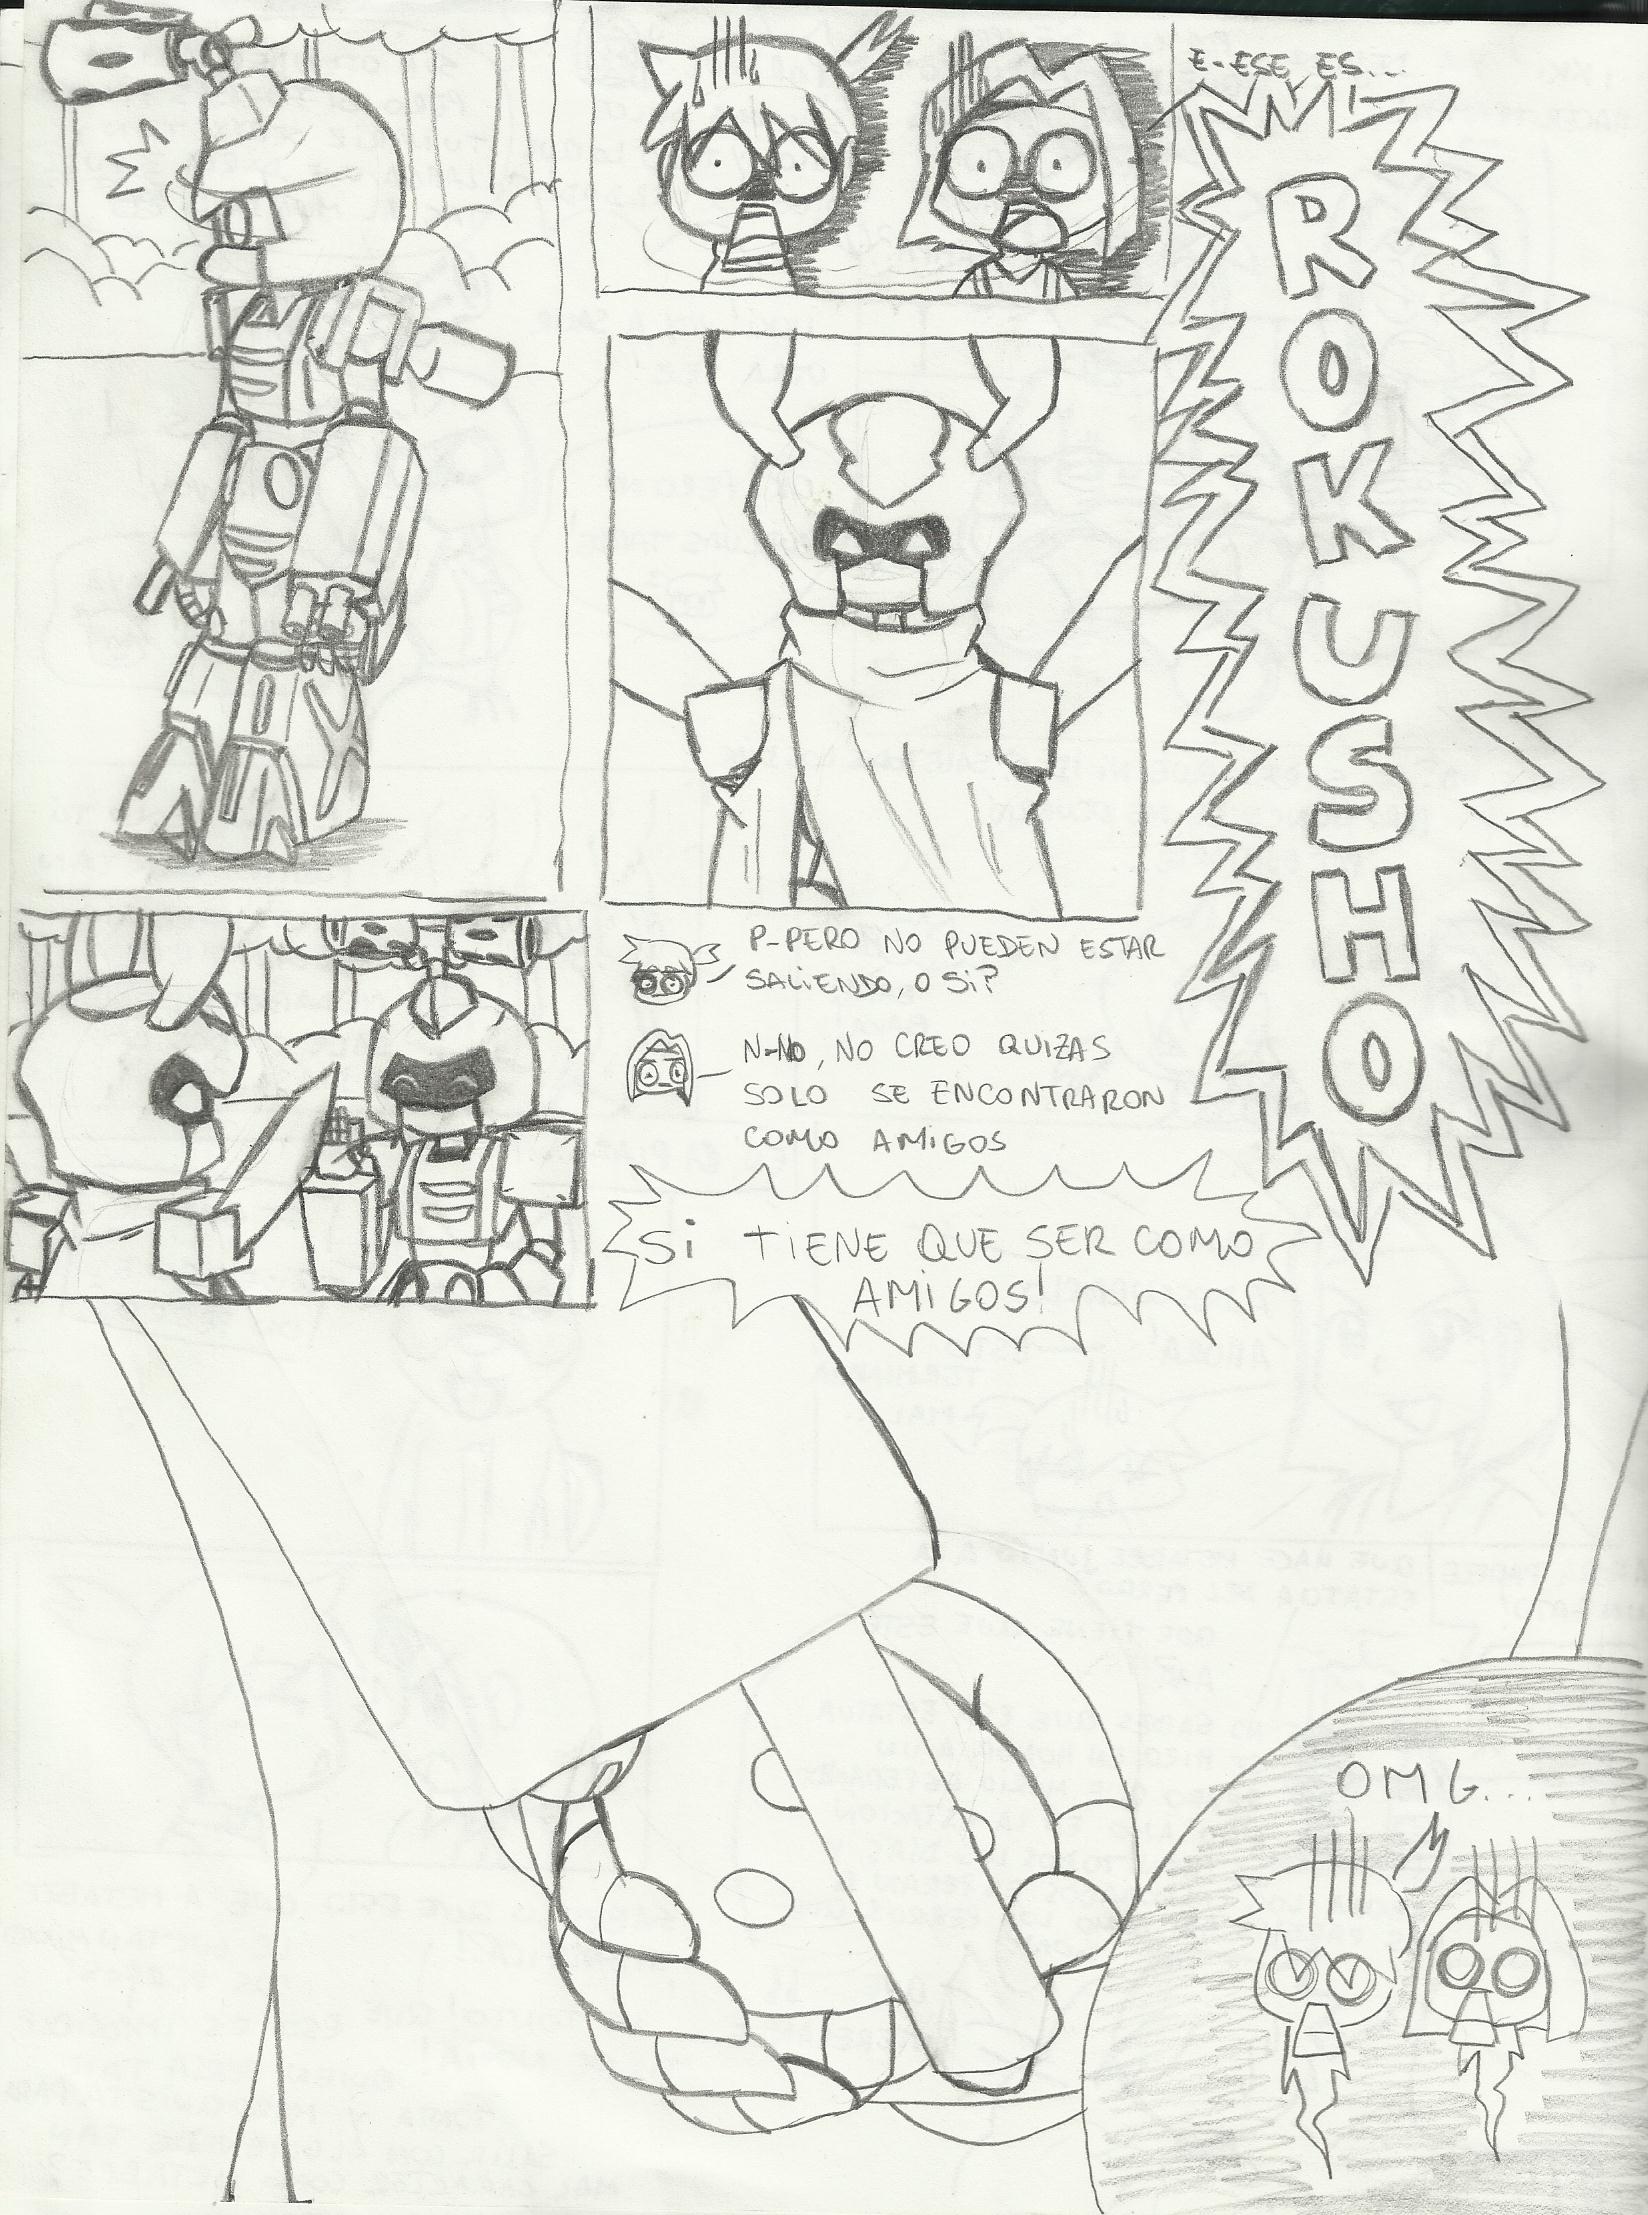 E-ESE ES...
ROKUSHO
P-PERO NO PUEDEN ESTAR
SALIENDO, O Si?
N-NO, NO CREO QUIZAS
SOLO SE ENCONTRARON
COMO AMIGOS
Si TiENE QUE SER COMO
AMiGOS!
OMG...